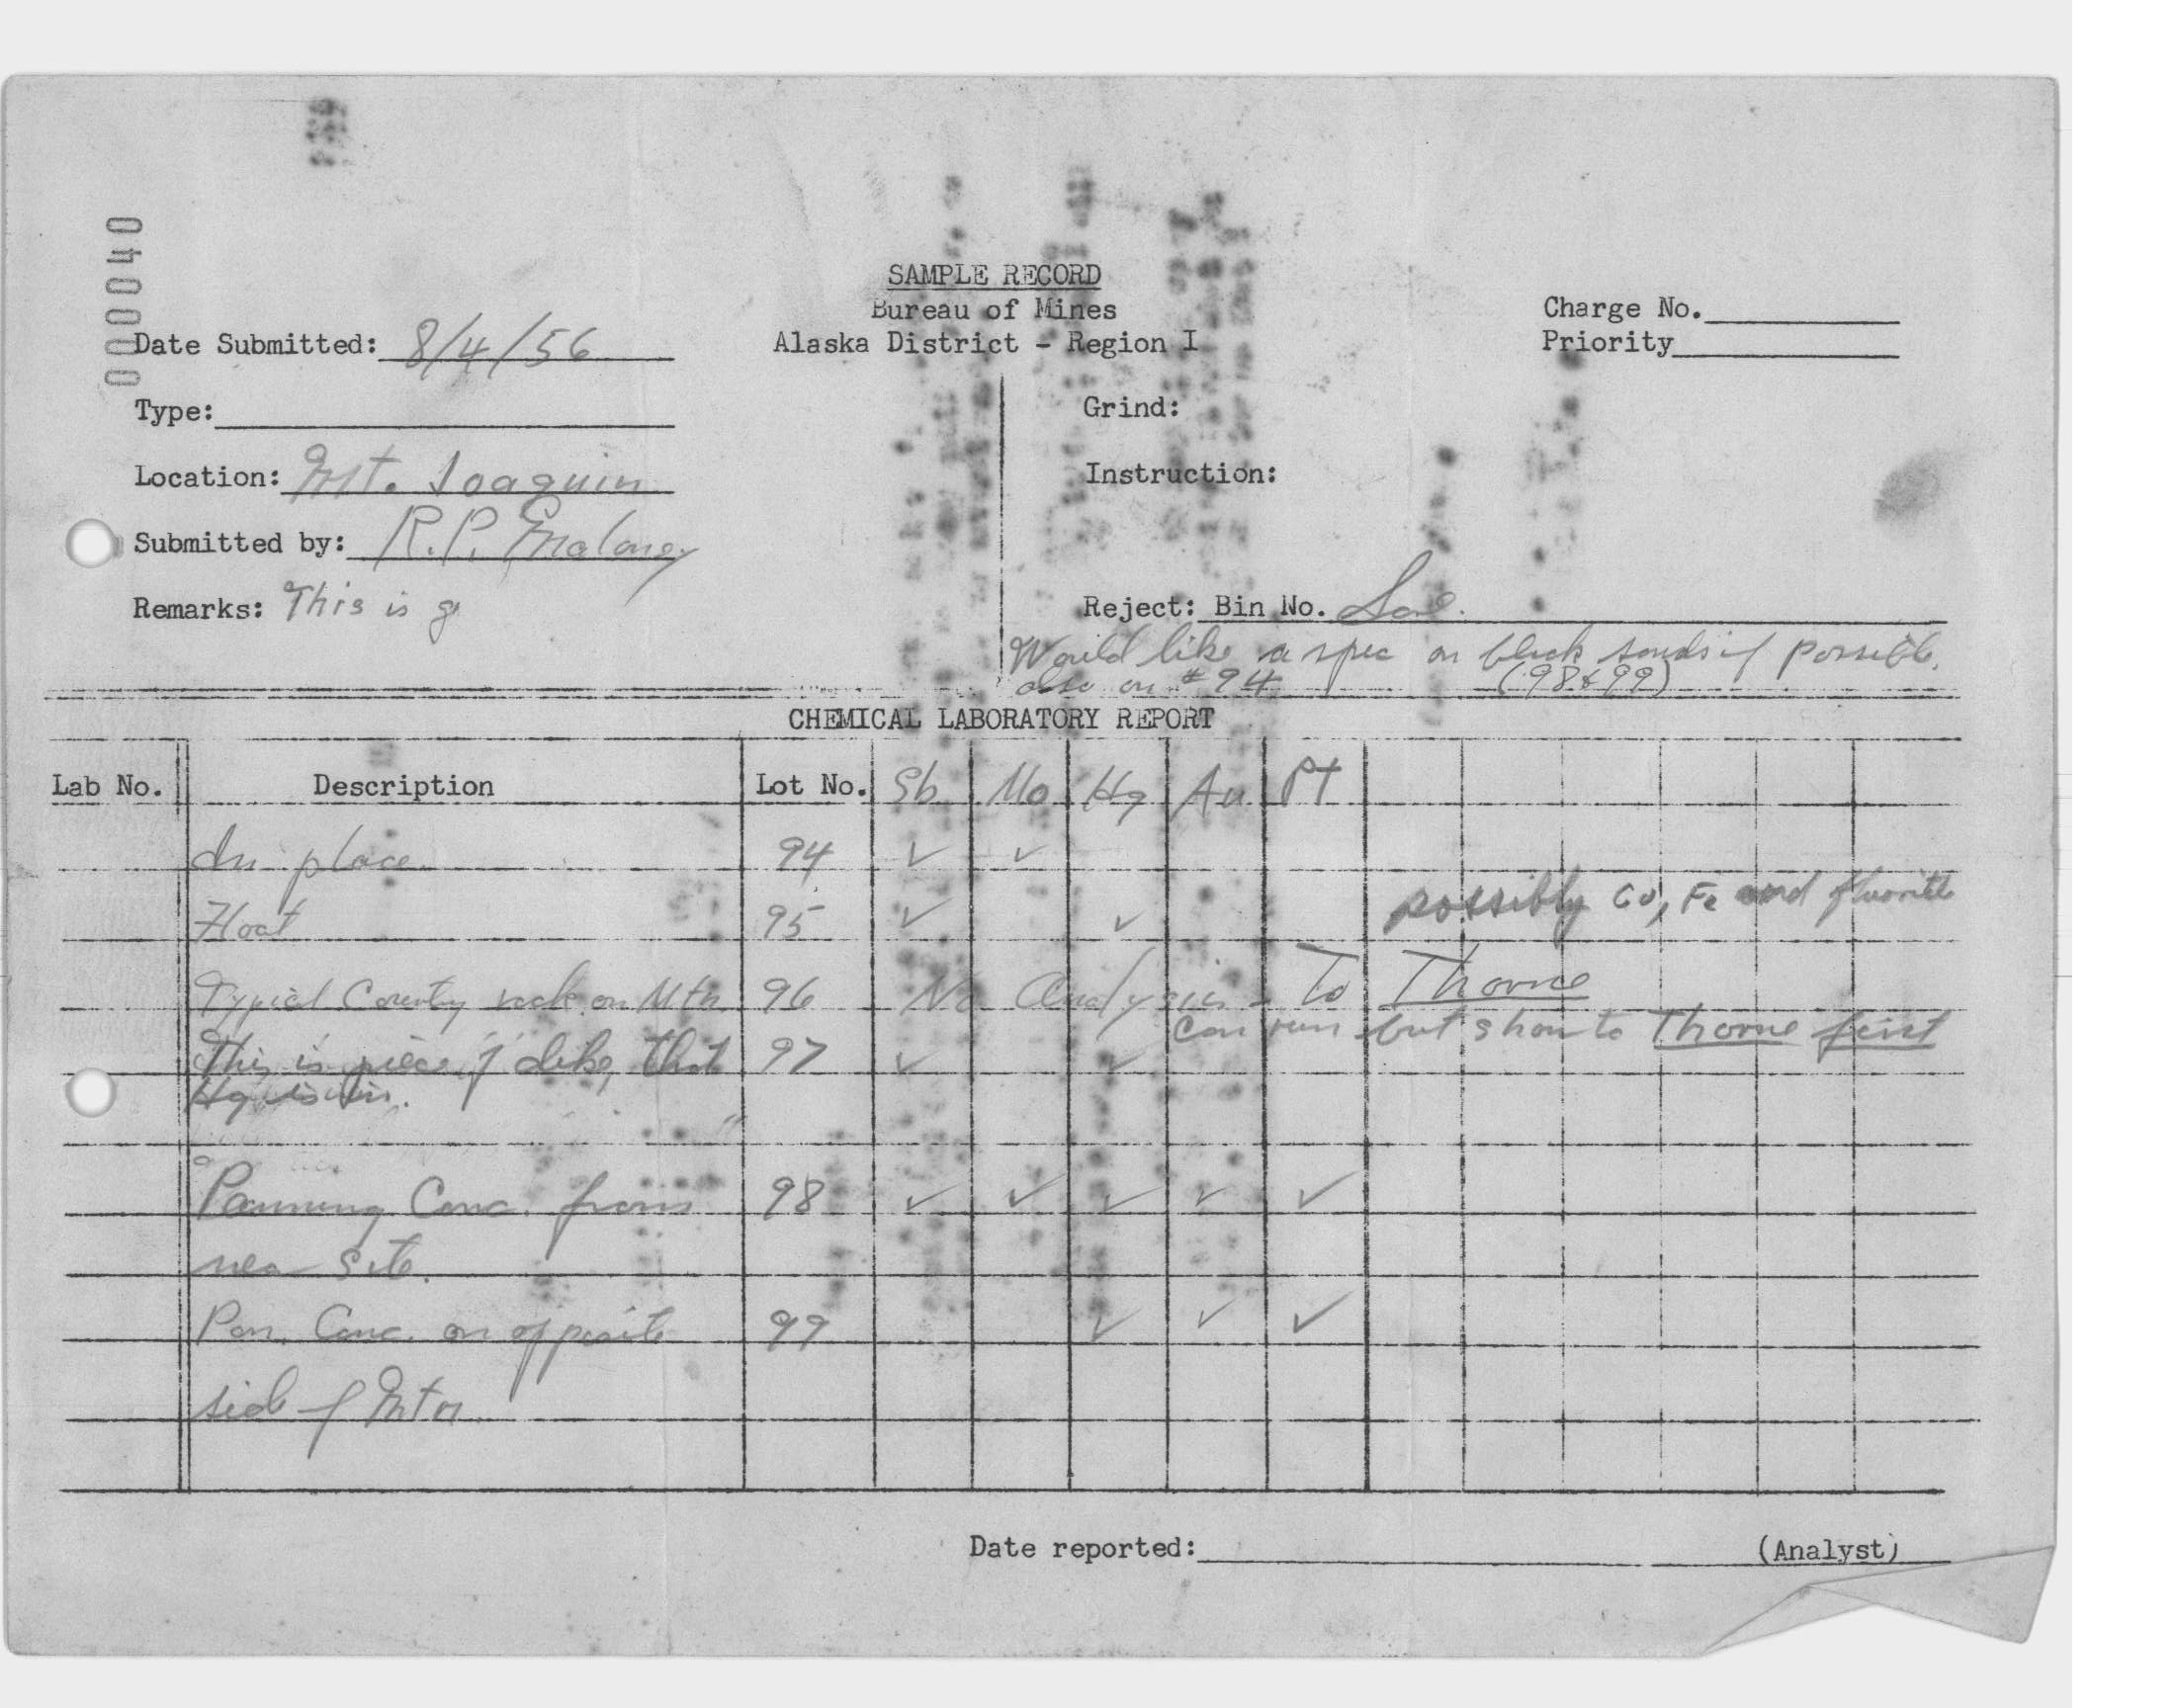 040000
SAMPLE RECORD
Bureau of Mines
Alaska District - Region I
Charge No.
Priority
Date Submitted: 8/4/56
Type:
Location: Mt. Joaquin
Submitted by: R.P. Maloney
Remarks: This is g
Grind:
Instruction:
Reject: Bin No. Save.
Would like a spec on black sands if possible.
also on #94 (98&99)
CHEMICAL LABORATORY REPORT
Lab No. Description Lot No. Sb Mo Hg Au Pt
In place 94 ✓ ✓
possibly Cu, Fe and fluorite
Float 95 ✓ ✓
Typical Country rock on Mtn. 96 No Analysis - To Thorne
can run but show to Thorne first
This is piece of dike, that 97 ✓ ✓
Hg is in.
Panning Conc. from 98 ✓ ✓ ✓ ✓ ✓
near site.
Pan. Conc. on opposite 99 ✓ ✓ ✓
side of Mtn.
Date reported: (Analyst)